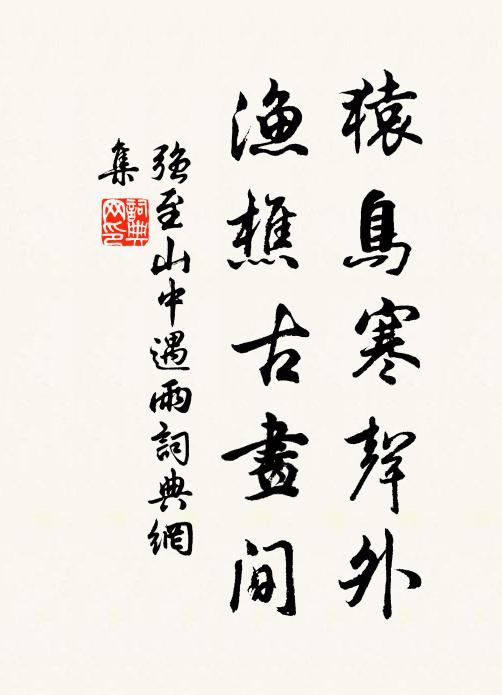 猿鳥寒聲外
漁樵古畫間
強至山中遇雨詞典網
集
詞典
网印